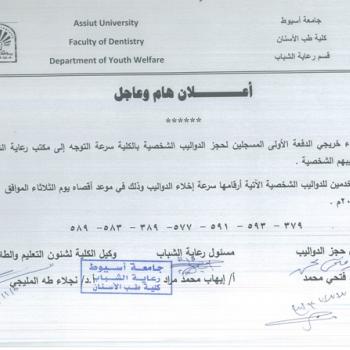 Assiut University
جامعة أسيوط
Faculty of Dentistry
كلية طب الأسنان
Department of Youth Welfare
قسم رعاية الشباب
أعـــلان هام وعاجل
******
خريجي الدفعة الأولى المسجلين لحجز الدواليب الشخصية بالكلية سرعة التوجه إلى مكتب رعاية
الشخصية .
للدواليب الشخصية الآتية أرقامها سرعة إخلاء الدواليب وذلك في موعد أقصاه يوم الثلاثاء الموافق
م .
٣٧٩ - ٥٩٣ - ٥٩١ - ٥٧٧ - ٣٨٩ - ٥٨٣ - ٥٨٩
حجز الدواليب
مسئول رعاية الشباب
وكيل الكلية لشئون التعليم
فتحي محمد
أ/ إيهاب محمد مراد
أ.د/ نجلاء طه المليجي
جامعة أسيوط
رعاية الشباب
كلية طب الأسنان